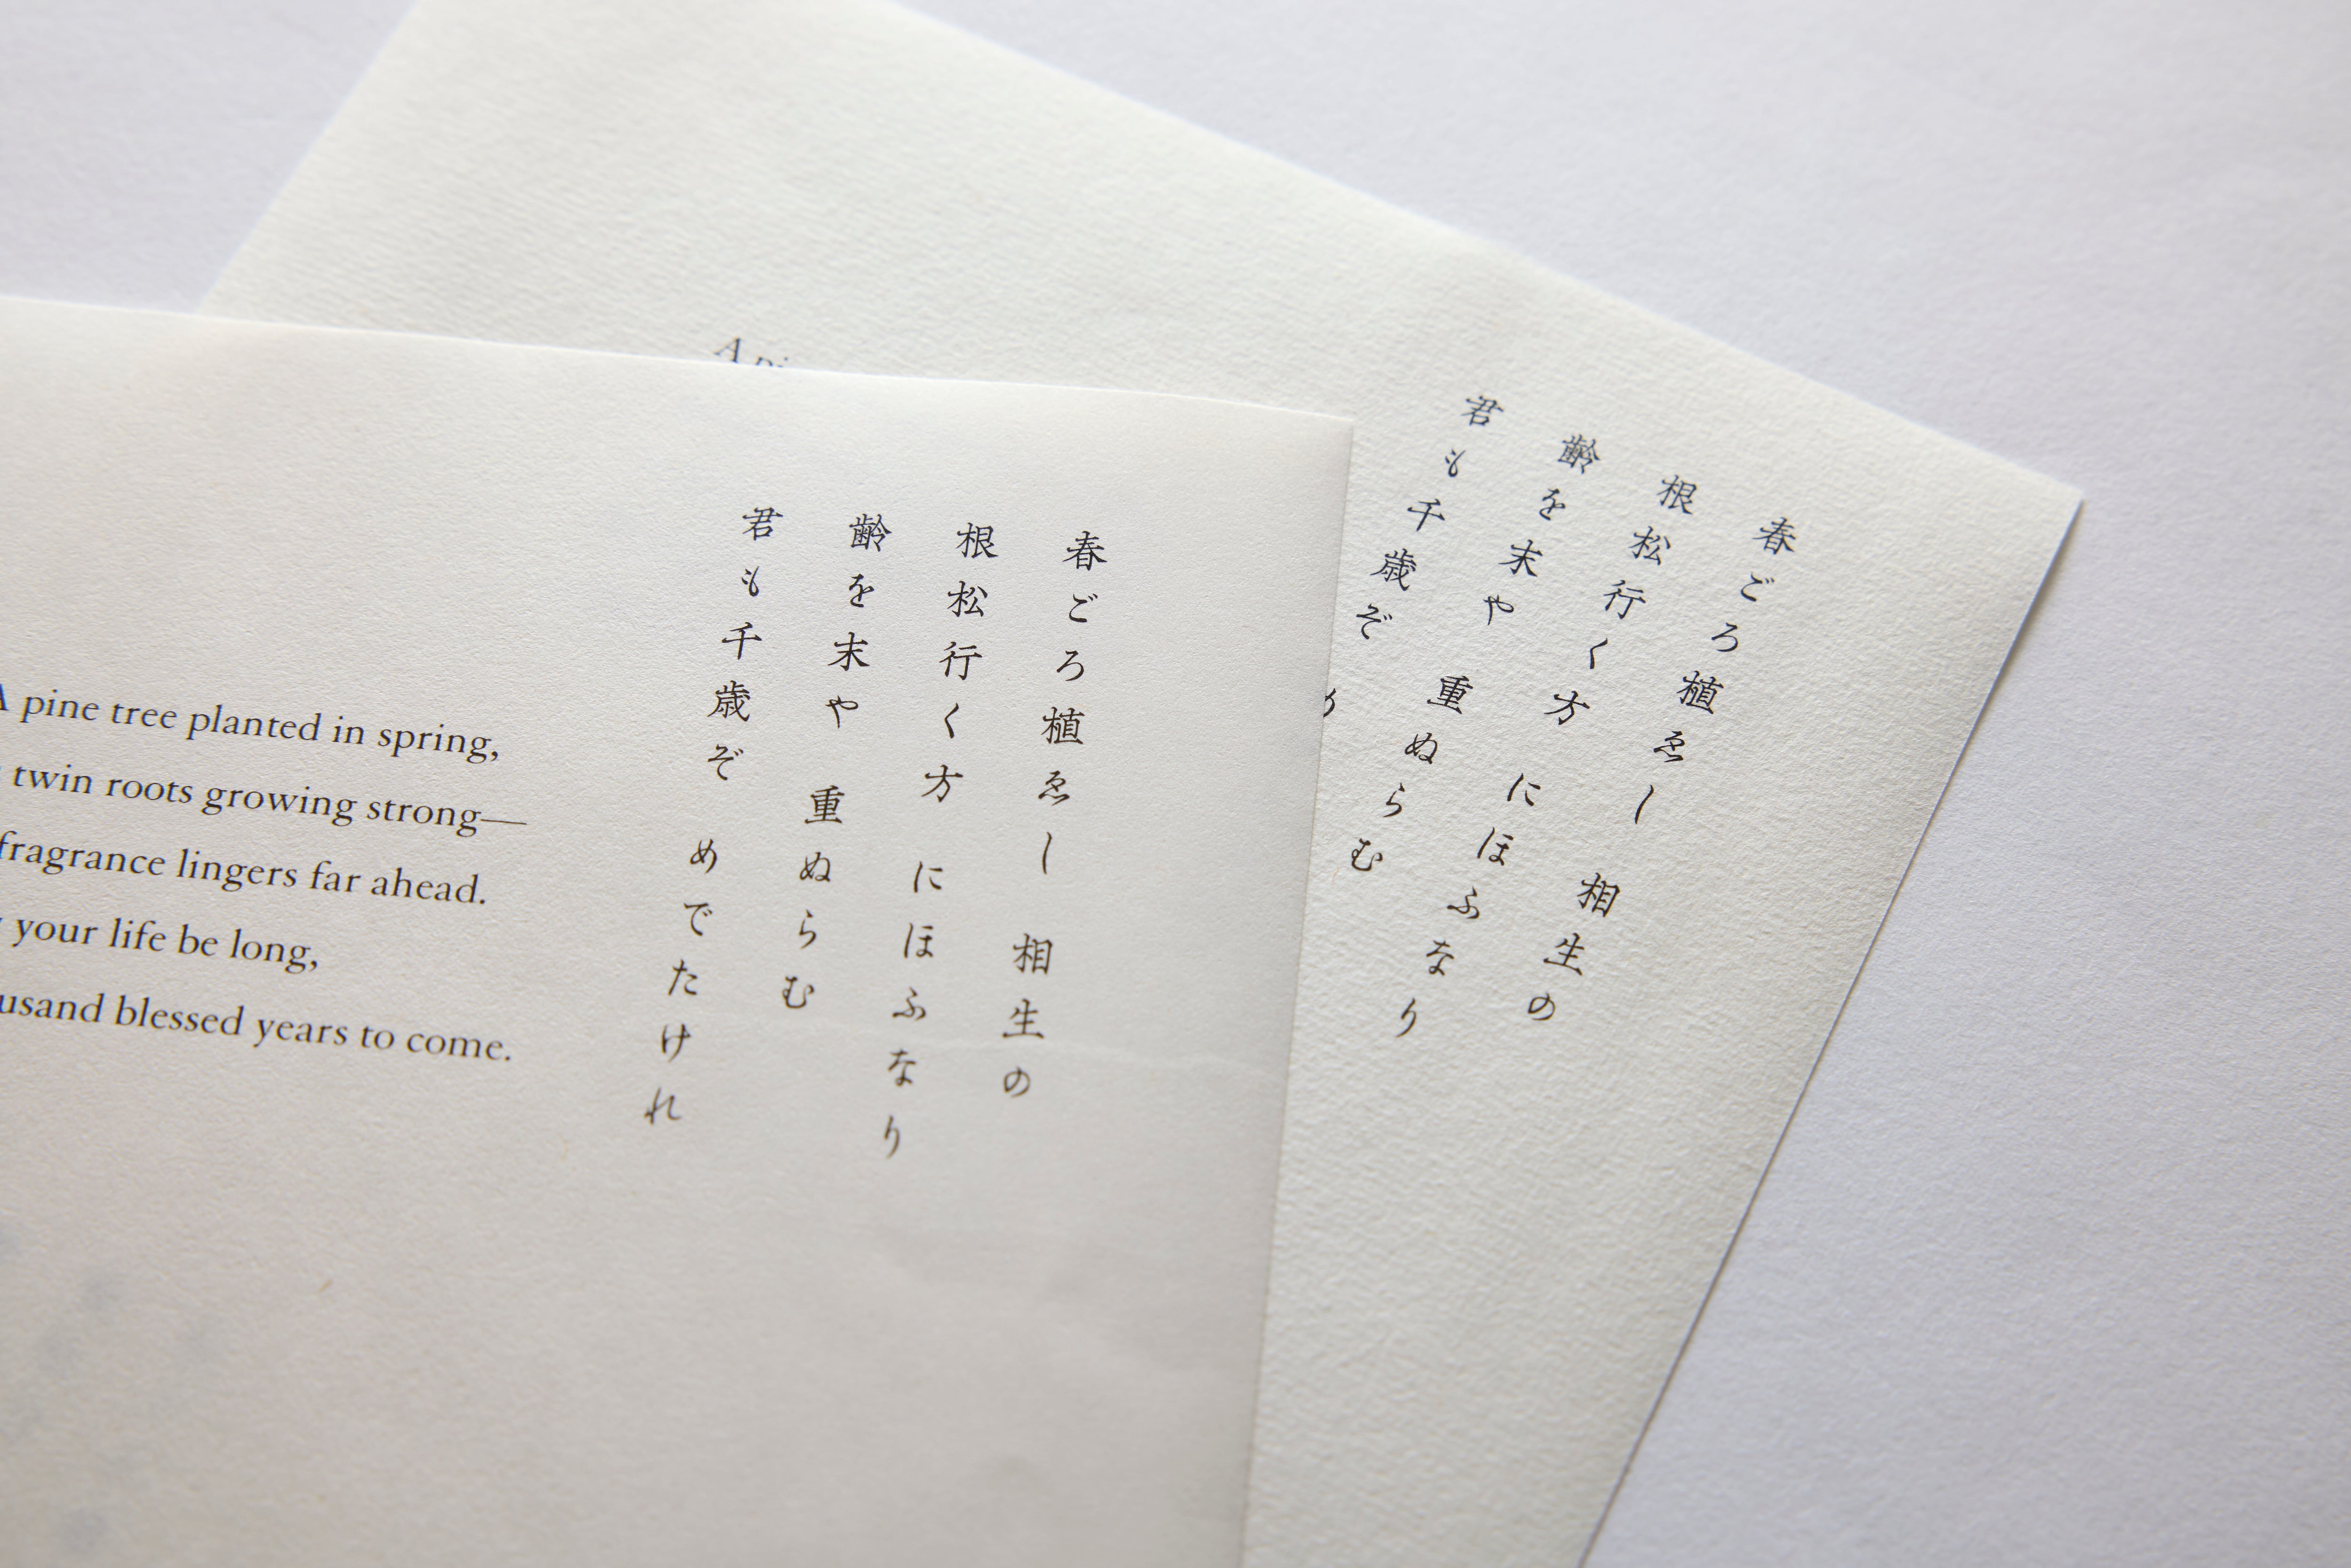 春ごろ植ゑし 相生の
根松行く方 にほふなり
齢を末や 重ぬらむ
君も千歳ぞ めでたけれ
A pine tree planted in spring,
twin roots growing strong—
fragrance lingers far ahead.
your life be long,
blessed years to come.
春ごろ植ゑし 相生の
根松行く方 にほふなり
齢を末や 重ぬらむ
君も千歳ぞ
A